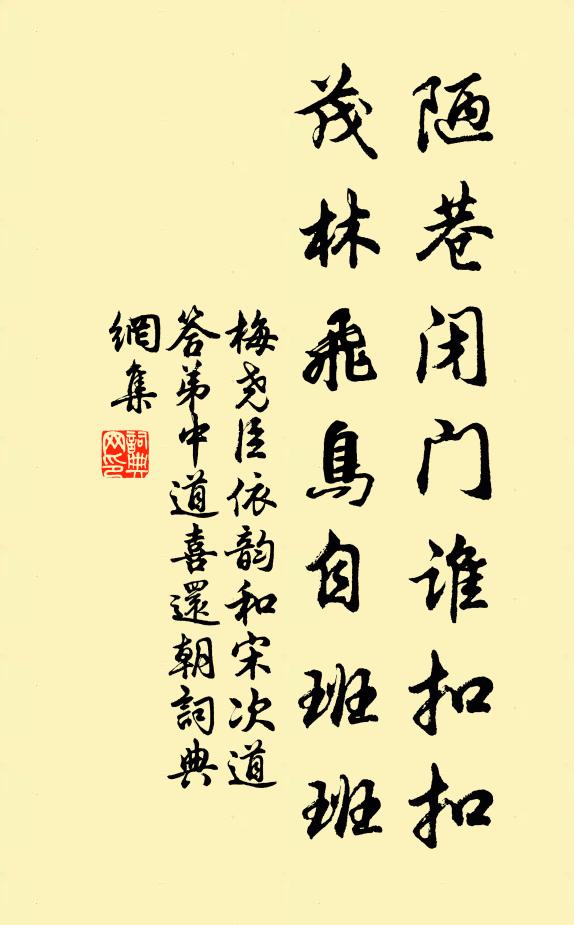 陋巷闭门谁扣扣
茂林飛鳥自班班
梅尧臣依韵和宋次道
答弟中道喜還朝詞典
網集
詞典
网印